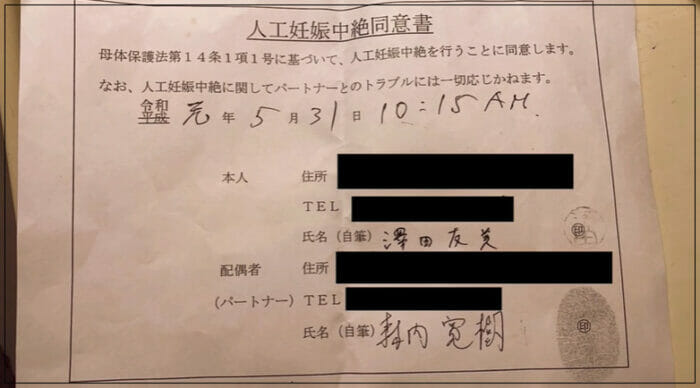 人工妊娠中絶同意書
母体保護法第14条1項1号に基づいて、人工妊娠中絶を行うことに同意します。
なお、人工妊娠中絶に関してパートナーとのトラブルには一切応じかねます。
令和
平成 元 年 5 月 31 日 10:15 AM.
本人 住所
TEL
氏名(自筆) 澤田友美 ㊞
配偶者 住所
(パートナー) TEL
氏名(自筆) 内寛樹 ㊞